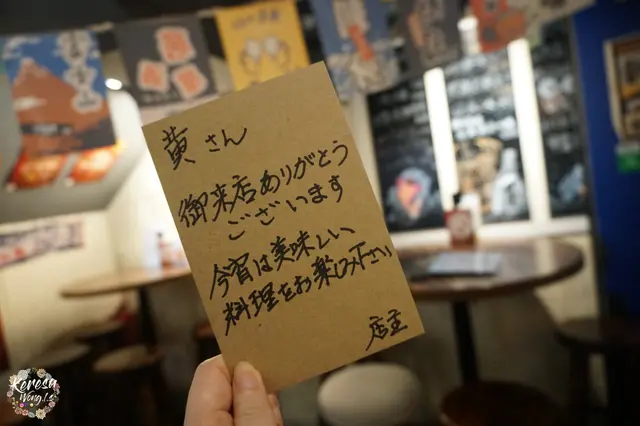 黄さん
御来店ありがとう
ございます
今宵は美味しい
料理をお楽しみ下さい
店主
Keresa
Wong.Ls